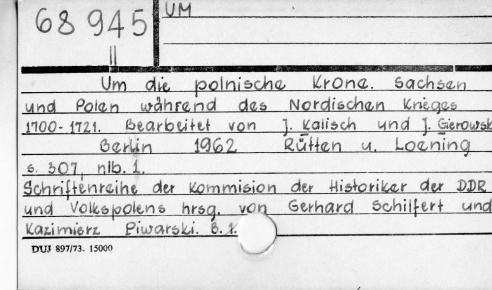 68 945
UM
||
Um die polnische Krone. Sachsen
und Polen während des Nordischen Krieges
1700-1721. Bearbeitet von J. Kalisch und J. Gierowsk
Berlin 1962 Rütten u. Loening
s. 307, nlb. 1.
Schriftenreihe der Kommision der Historiker der DDR
und Volkspolens hrsg. von Gerhard Schilfert und
Kazimierz Piwarski. B. 1.
DUJ 897/73. 15000